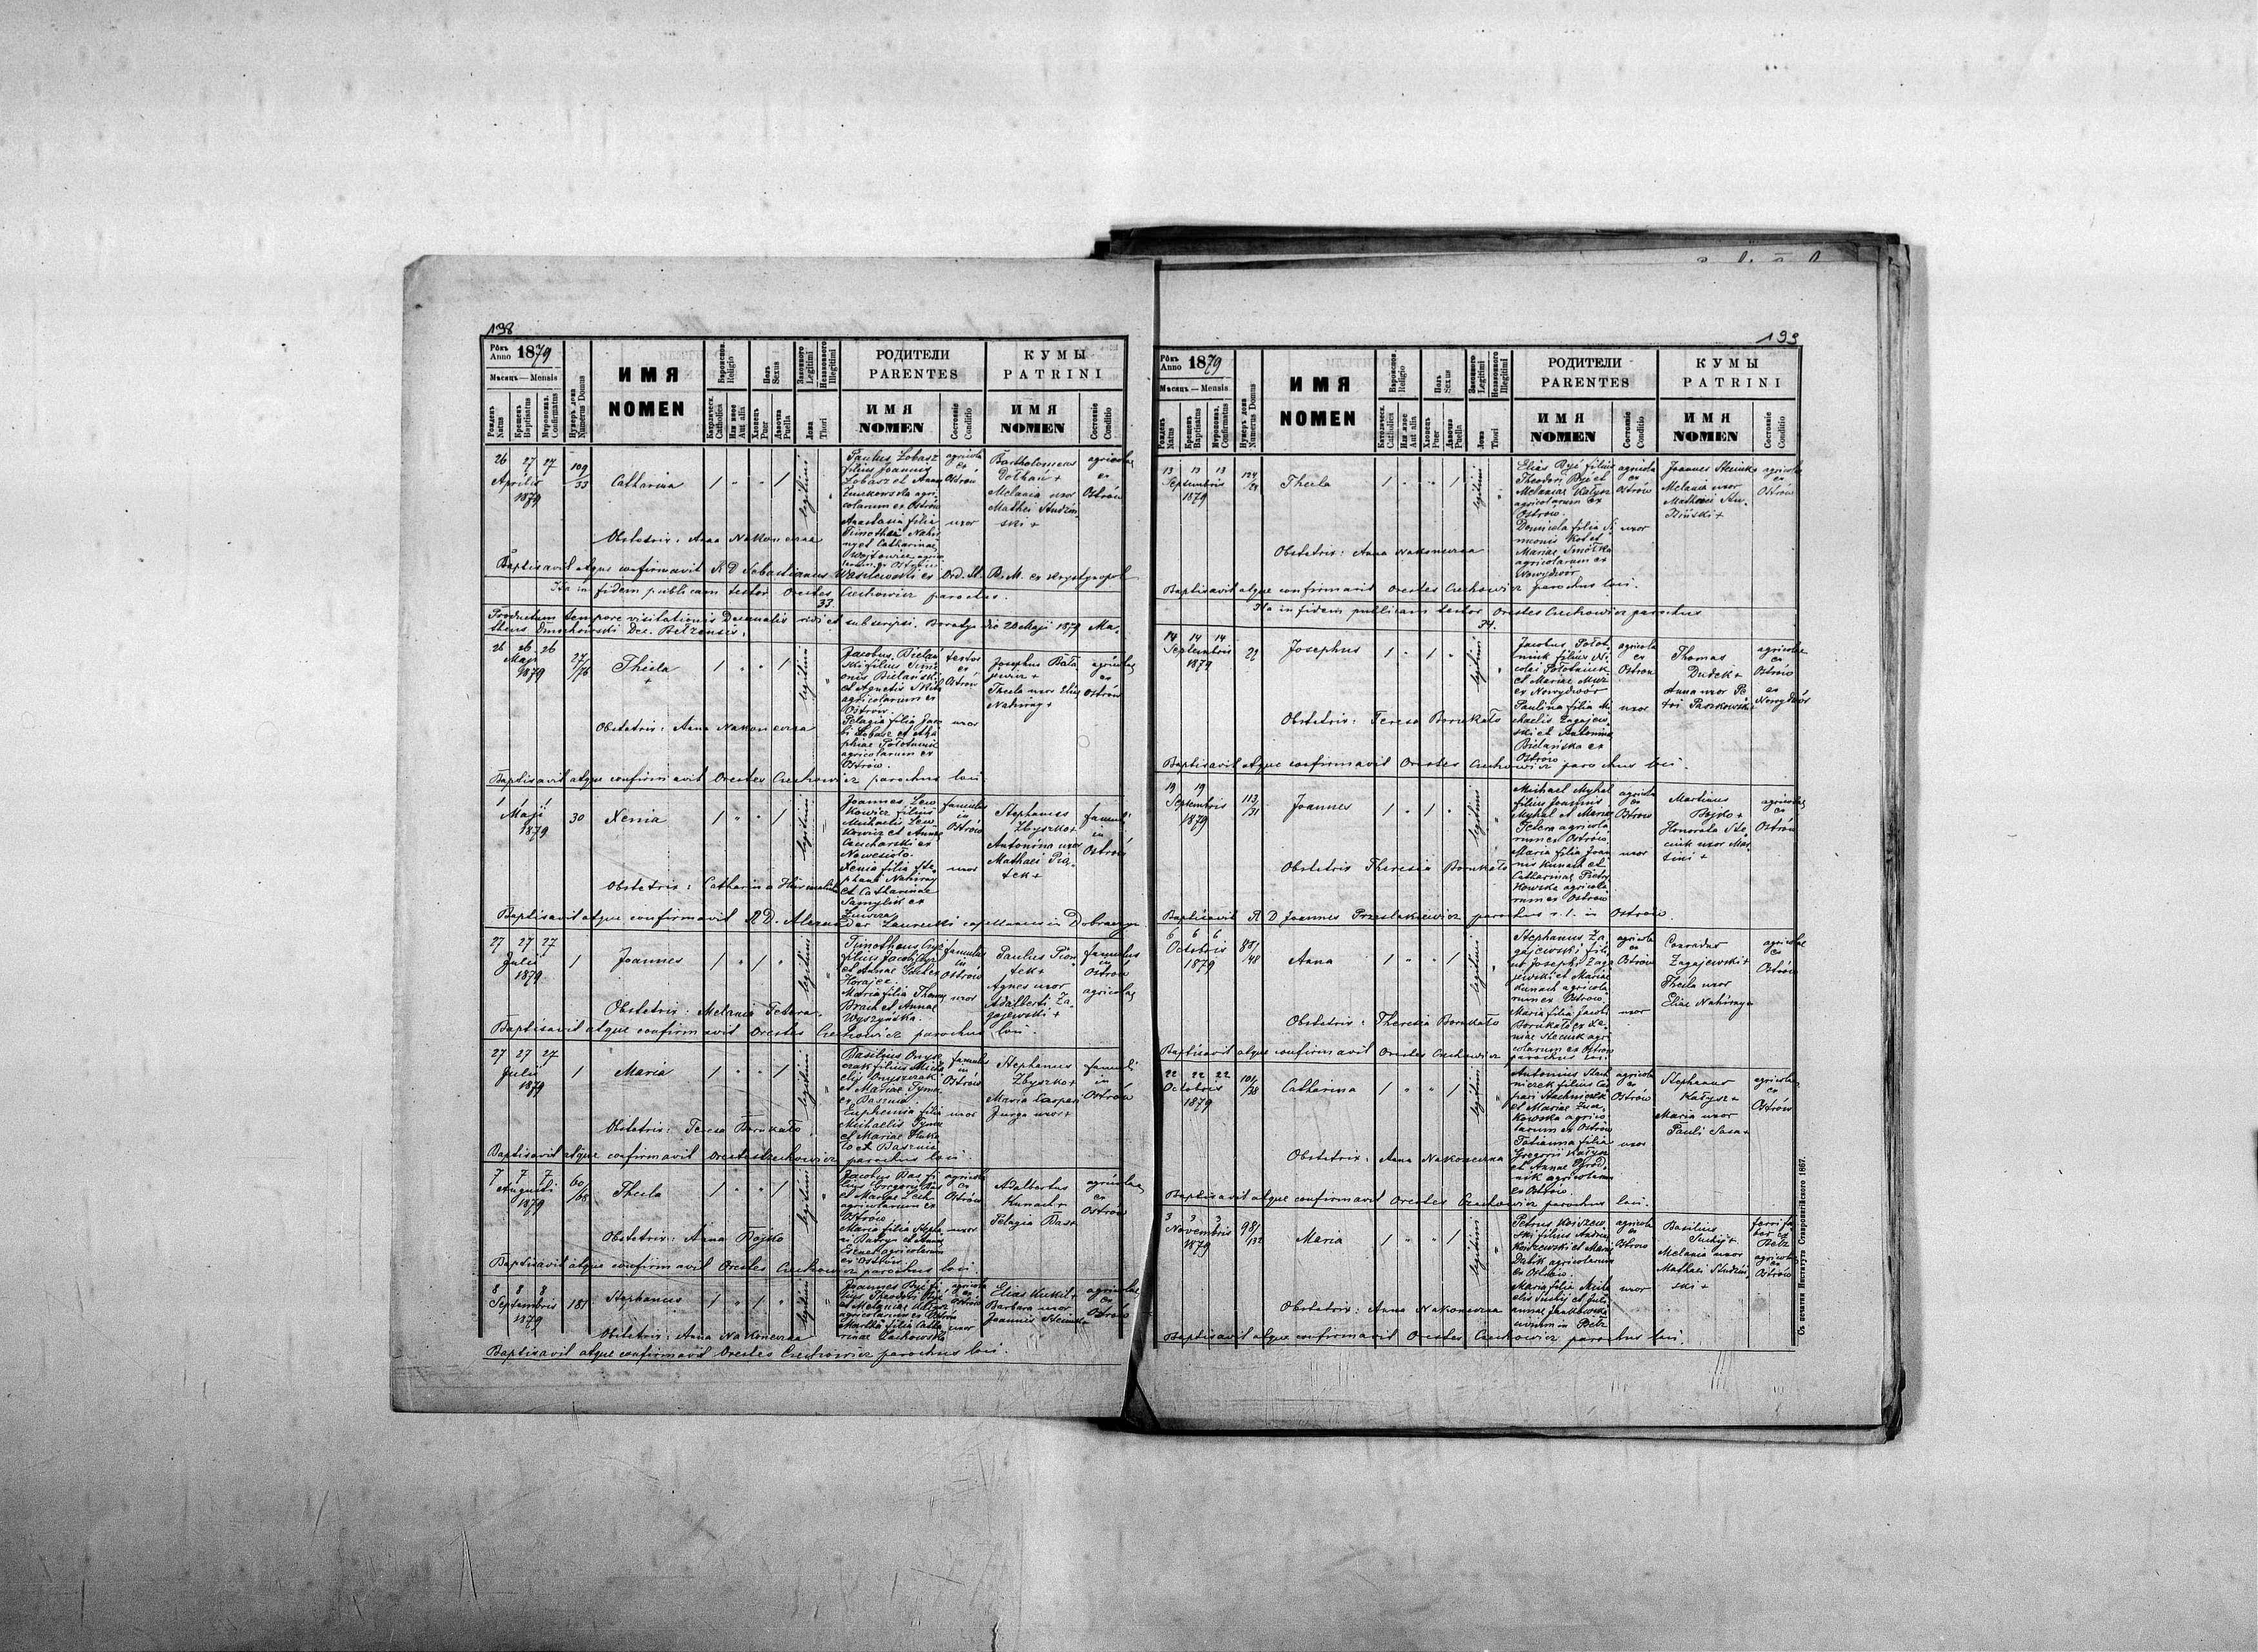 198
Рôкъ Anno 1879
Мѣсяць — Mensis
Рожденъ Natus
Крещенъ Baptisatus
Мvропомаз. Confirmatus
Нумеръ дома Numerus Domus
ИМЯ
NOMEN
Вѣроиспов. Religio
Католическ. Catholica
Или иное Aut alia
Полъ Sexus
Хлопець Puer
Дѣвочка Puella
Законного Legitimi
Незаконного Illegitimi
Ложа Thori
РОДИТЕЛИ
PARENTES
ИМЯ
NOMEN
Состояніе Conditio
КУМЫ
PATRINI
ИМЯ
NOMEN
Состояніе Conditio
26 27 27
Aprilis
1879
109/33
Catharina
legitimi
Paulus Łobasz
filius Joannis
Łobasz et Anna
agricolarum ex Ostrów
Anastasia filia
Timothei
et Catharinae
Wojtowicz
agricola
ex
Ostrów
uxor
Bartholomeus
Dołhan +
Melania uxor
Mathei Studzin
ski +
agricolae
ex
Ostrów
Obstetrix: Anna Nakoneczna
Baptisavit atque confirmavit R D Sebastianus Wasilewski ex Ord. St. B. M. ex Krystynopol
Ita in fidem publicam testor Orestes Czechowicz parochus.
33.
Productum tempore visitationis Decanalis vidi et subscripsi. Boratyn die 20 Maji 1879 Ma
theus Dmochowski Dec. Belzensis.
26 26 26
Maji
1879
27/76
Thecla
+
legitimi
Jacobus Bielań
ski filius Sime
onis Bielański
et Agnetis
agricolarum ex
Ostrów.
Pelagia filia Jaco
bi Łobasz et Aga
phiae Połotniuk
agricolarum ex
Ostrów.
ex
Ostrów
uxor
Josephus
Thecla uxor Eliae
Nahirny +
agricolae
ex
Ostrów
Obstetrix: Anna Nakoneczna
Baptisavit atque confirmavit Orestes Czechowicz parochus loci
1 1
Maji
1879
30
Xenia
legitimi
Joannes Lew
kowicz filius
Michaelis Lew
kowicz et Annae
ex
Nowesioło.
Xenia filia Ste
phani Nahirny
et Catharinae
ex
famulus
in
Ostrów
uxor
Stephanus
Zbyszko +
Antonina uxor
Mathaei Pią
tek +
famuli
in
Ostrów
Obstetrix: Catharina
Baptisavit atque confirmavit R D. Alexander Laurecki capellanus in Dobraczyn
27 27 27
Julii
1879
1
Joannes
legitimi
Timotheus
filius Jacobi
et Annae
Horajec.
Maria filia Thomae
Brach et Annae
Wyszyńska.
famulus
in
Ostrów
uxor
Paulus Pion
tek +
Agnes uxor
Adalberti Za
gajewski +
famulus
in
Ostrów
agricolae
Obstetrix: Melania Fetera.
Baptisavit atque confirmavit Orestes Czechowicz parochus loci.
27 27 27
Julii
1879
1
Maria
legitimi
Basilius Onysz
czak filius Micha
elis Onyszczak
et Mariae Tyma
ex Basznia
Euphemia filia
Michaelis Tyma
et Mariae
ex Basznia
famulus
in
Ostrów
uxor
Stephanus
Zbyszko +
Maria Caspari
Jurga uxor +
famuli
in
Ostrów
Obstetrix: Teresa Borukało
Baptisavit atque confirmavit Orestes Czechowicz parochus loci.
7 7 7
Augusti
1879
60/68
Thecla
legitimi
Jacobus Bas fi
lius Gregorii Bas
et Mariae Lech
agricolarum ex
Ostrów
Maria filia Stepha
ni et Annae
agricolarum
ex Ostrów
agricola
ex
Ostrów
uxor
Adalbertus
Kunach +
Pelagia Bas +
agricolae
ex
Ostrów
Obstetrix: Anna Bojko
Baptisavit atque confirmavit Orestes Czechowicz parochus loci.
8 8 8
Septembris
1879
181
Stephanus
legitimi
Joannes Być fi
lius Theodori Być
et Melaniae Kałysz
agricolarum ex Ostrów
Martha filia Catha
rinae Lachowska
agricola
ex
Ostrów
uxor
Elias Kukil +
Barbara uxor
Joannis
agricolae
ex
Ostrów
Obstetrix: Anna Nakoneczna
Baptisavit atque confirmavit Orestes Czechowicz parochus loci.
199
Рôкъ Anno 1879
Мѣсяць — Mensis
Рожденъ Natus
Крещенъ Baptisatus
Мvропомаз. Confirmatus
Нумеръ дома Numerus Domus
ИМЯ
NOMEN
Вѣроиспов. Religio
Католическ. Catholica
Или иное Aut alia
Полъ Sexus
Хлопець Puer
Дѣвочка Puella
Законного Legitimi
Незаконного Illegitimi
Ложа Thori
РОДИТЕЛИ
PARENTES
ИМЯ
NOMEN
Состояніе Conditio
КУМЫ
PATRINI
ИМЯ
NOMEN
Состояніе Conditio
13 13 13
Septembris
1879
Thecla
legitimi
Elias Być filius
Theodori Być et
Melaniae Kałysz
agricolarum ex
Ostrów.
filia Si
meonis Kot et
Mariae
agricolarum ex
Nowydwór
agricola
ex
Ostrów
uxor
Joannes
Melania uxor
Mathaei Stu
dziński +
agricolae
ex
Ostrów
Obstetrix: Anna Nakoneczna
Baptisavit atque confirmavit Orestes Czechowicz parochus loci.
Ita in fidem publicam testor Orestes Czechowicz parochus
34.
14 14 14
Septembris
1879
22
Josephus
legitimi
Jacobus Połot
niuk filius Ni
colai Połotniuk
et Mariae
ex Nowydwór
Paulina filia Mi
chaelis Zagajew
ski et Antonina
Bielańska ex
Ostrów
agricola
ex
Ostrów
uxor
Thomas
Dudek +
Anna uxor Pe
tri Paszkowski
agricolae
ex
Ostrów
ex
Nowydwór
Obstetrix: Teresa Borukało
Baptisavit atque confirmavit Orestes Czechowicz parochus loci.
19 19
Septembris
1879
113/131
Joannes
legitimi
Michael Myhal
filius Joannis
Myhal et Mariae
Fetera agricola
rum ex Ostrów.
Maria filia Joan
nis Kunach et
Catharinae Piotr
kowska agricola
rum ex Ostrów
agricola
ex
Ostrów
uxor
Martinus
Bojko +
Honorata Ste
ciuk uxor Mar
tini +
agricolae
ex
Ostrów
Obstetrix Theresia Borukało
Baptisavit R D Joannes parochus r. l. in Ostrów.
6 6 6
Octobris
1879
85/48
Anna
legitimi
Stephanus Za
gajewski fili
us Josephi Zaga
jewski et Mariae
Kunach agricola
rum ex Ostrów.
Maria filia Jacobi
Borukało et Xe
niae Steciuk agri
colarum ex Ostrów
agricola
ex
Ostrów
uxor
Conradus
Zagajewski +
Thecla uxor
Eliae Nahirny +
agricolae
ex
Ostrów
Obstetrix: Theresia Borukało
Baptisavit atque confirmavit Orestes Czechowicz parochus loci
22 22 22
Octobris
1879
101/38
Catharina
legitimi
Antonius Stach
niczek filius Cas
pari Stachniczek
et Mariae Żu
kowska agrico
larum ex Ostrów
Tatianna filia
Gregorii Kałysz
et Annae Ogrod
nik agricolarum
ex Ostrów.
agricola
ex
Ostrów
uxor
Stephanus
Kałysz +
Maria uxor
Pauli Sasa +
agricolae
ex
Ostrów
Obstetrix: Anna Nakoneczna
Baptisavit atque confirmavit Orestes Czechowicz parochus loci.
3 3 3
Novembris
1879
98/132
Maria
legitimi
Petrus Koszew
ski filius Andreae
Koszewski et Mariae
Dubik agricolarum
ex Ostrów.
Maria filia Micha
elis Suchij et Juli
annae Jankowska
civium in Bełz
agricola
ex
Ostrów
uxor
Basilius
Suchij +
Melania uxor
Mathaei Studziń
ski +
ex
Bełz
agricola
ex
Ostrów
Obstetrix: Anna Nakoneczna
Baptisavit atque confirmavit Orestes Czechowicz parochus loci.
Съ печатни Института Ставропигійского 1867.